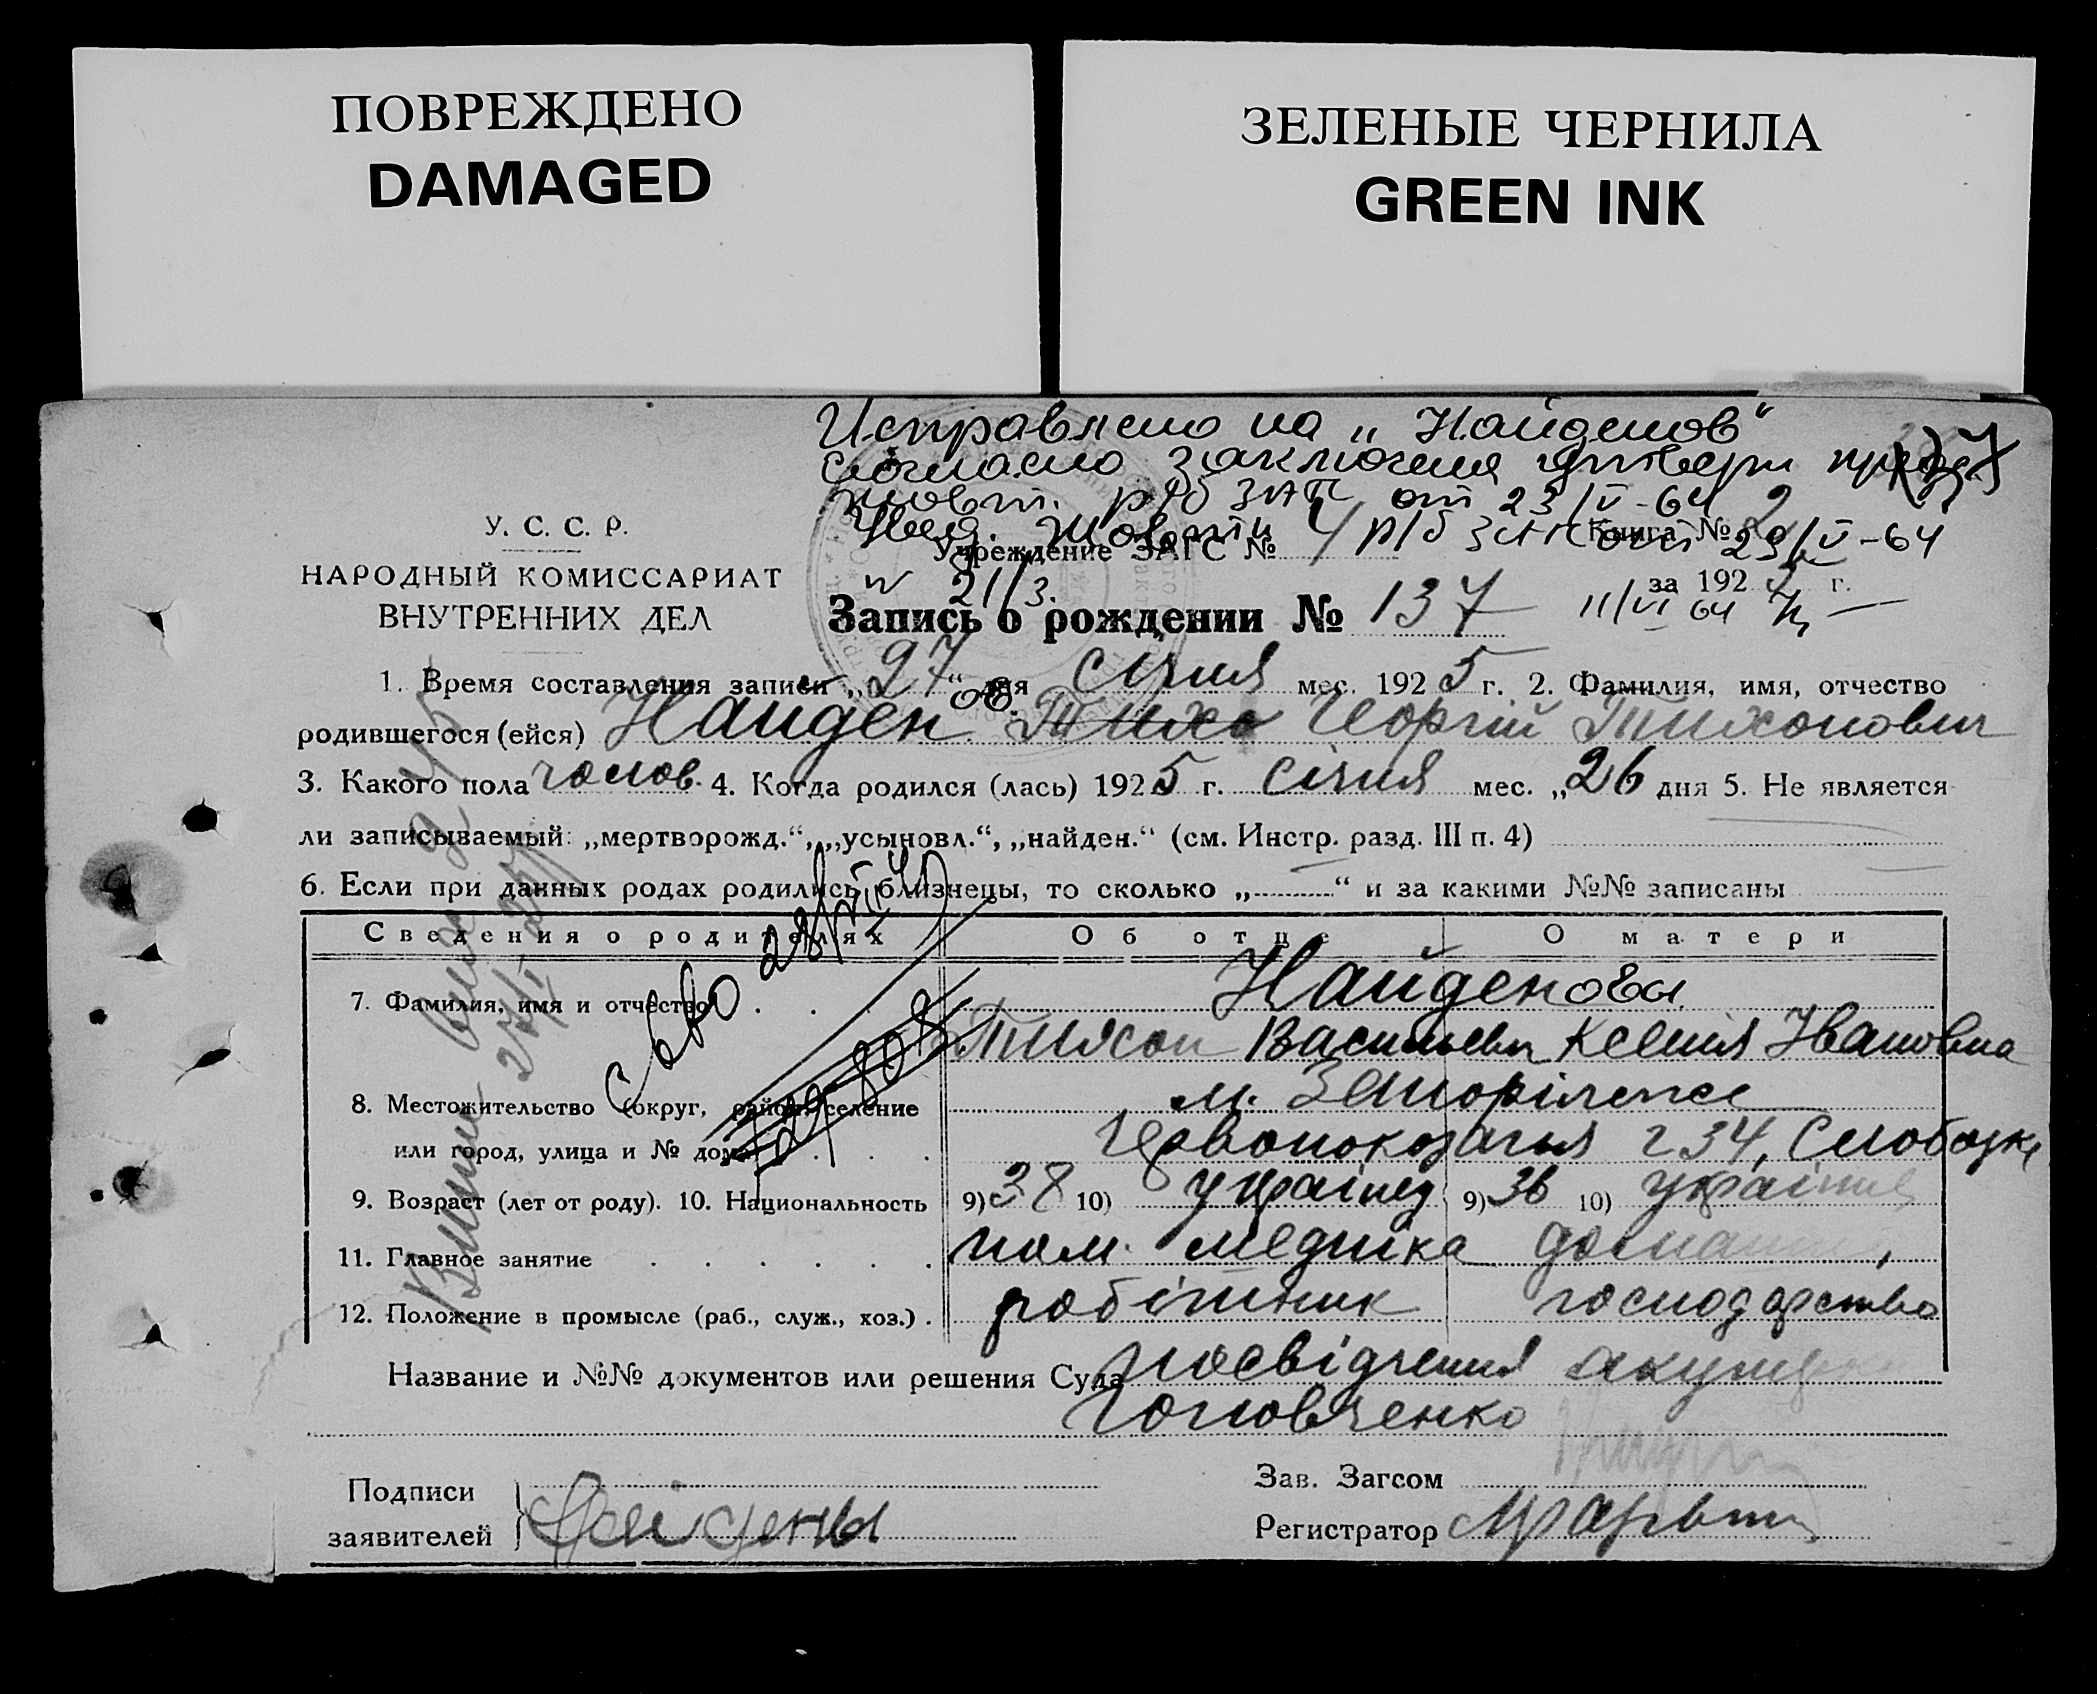 ПОВРЕЖДЕНО
DAMAGED
ЗЕЛЕНЫЕ ЧЕРНИЛА
GREEN INK
Исправлено на „Найденов“
согласно заключения
р/б ЗАГС от 23/V-64
4 р/б ЗАГС от 23/V-64
У. С. С. Р.
НАРОДНЫЙ КОМИССАРИАТ
ВНУТРЕННИХ ДЕЛ
Учреждение ЗАГС №
Книга № 2
за 192 5 г.
11/VI 64
Запись о рождении № 137
1. Время составления записи „27“ дня січня мес. 1925 г. 2. Фамилия, имя, отчество
родившегося (ейся) Найден ов. Тихо Георгій Тихонович
3. Какого пола чолов. 4. Когда родился (лась) 1925 г. січня мес. „26 дня 5. Не является
ли записываемый: „мертворожд.“, „усыновл.“, „найден.“ (см. Инстр. разд. III п. 4)
6. Если при данных родах родились близнецы, то сколько „ “ и за какими №№ записаны
Сведения о родителях
Об отце
О матери
7. Фамилия, имя и отчество
Найденовы
Тихон Васильевич Ксенія Ивановна
8. Местожительство (округ, район, селение
или город, улица и № дома)
м.
Червонокозача 234, Слободка
9. Возраст (лет от роду). 10. Национальность
9) 38 10) українец 9) 36 10) україн
11. Главное занятие
пом. медника
12. Положение в промысле (раб., служ., хоз.)
робітник
господарство
Название и №№ документов или решения Суда Посвідчення акушерки
Головченко
Подписи
заявителей
Найдены
Зав. Загсом
Регистратор